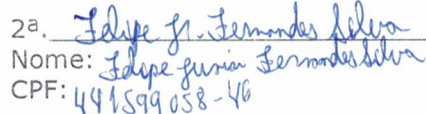 2ª. Felipe Jr. Fernandes Silva
Nome: Felipe Junior Fernandes Silva
CPF: 441599058-46